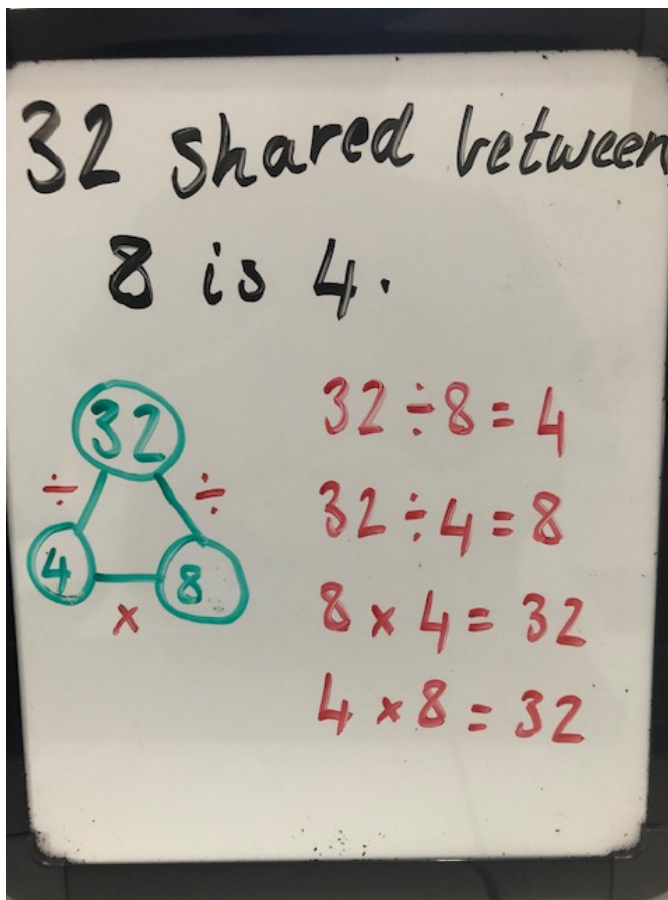 32 shared between
8 is 4.
32
32 ÷ 8 = 4
÷ ÷
32 ÷ 4 = 8
4 8
8 × 4 = 32
×
4 × 8 = 32